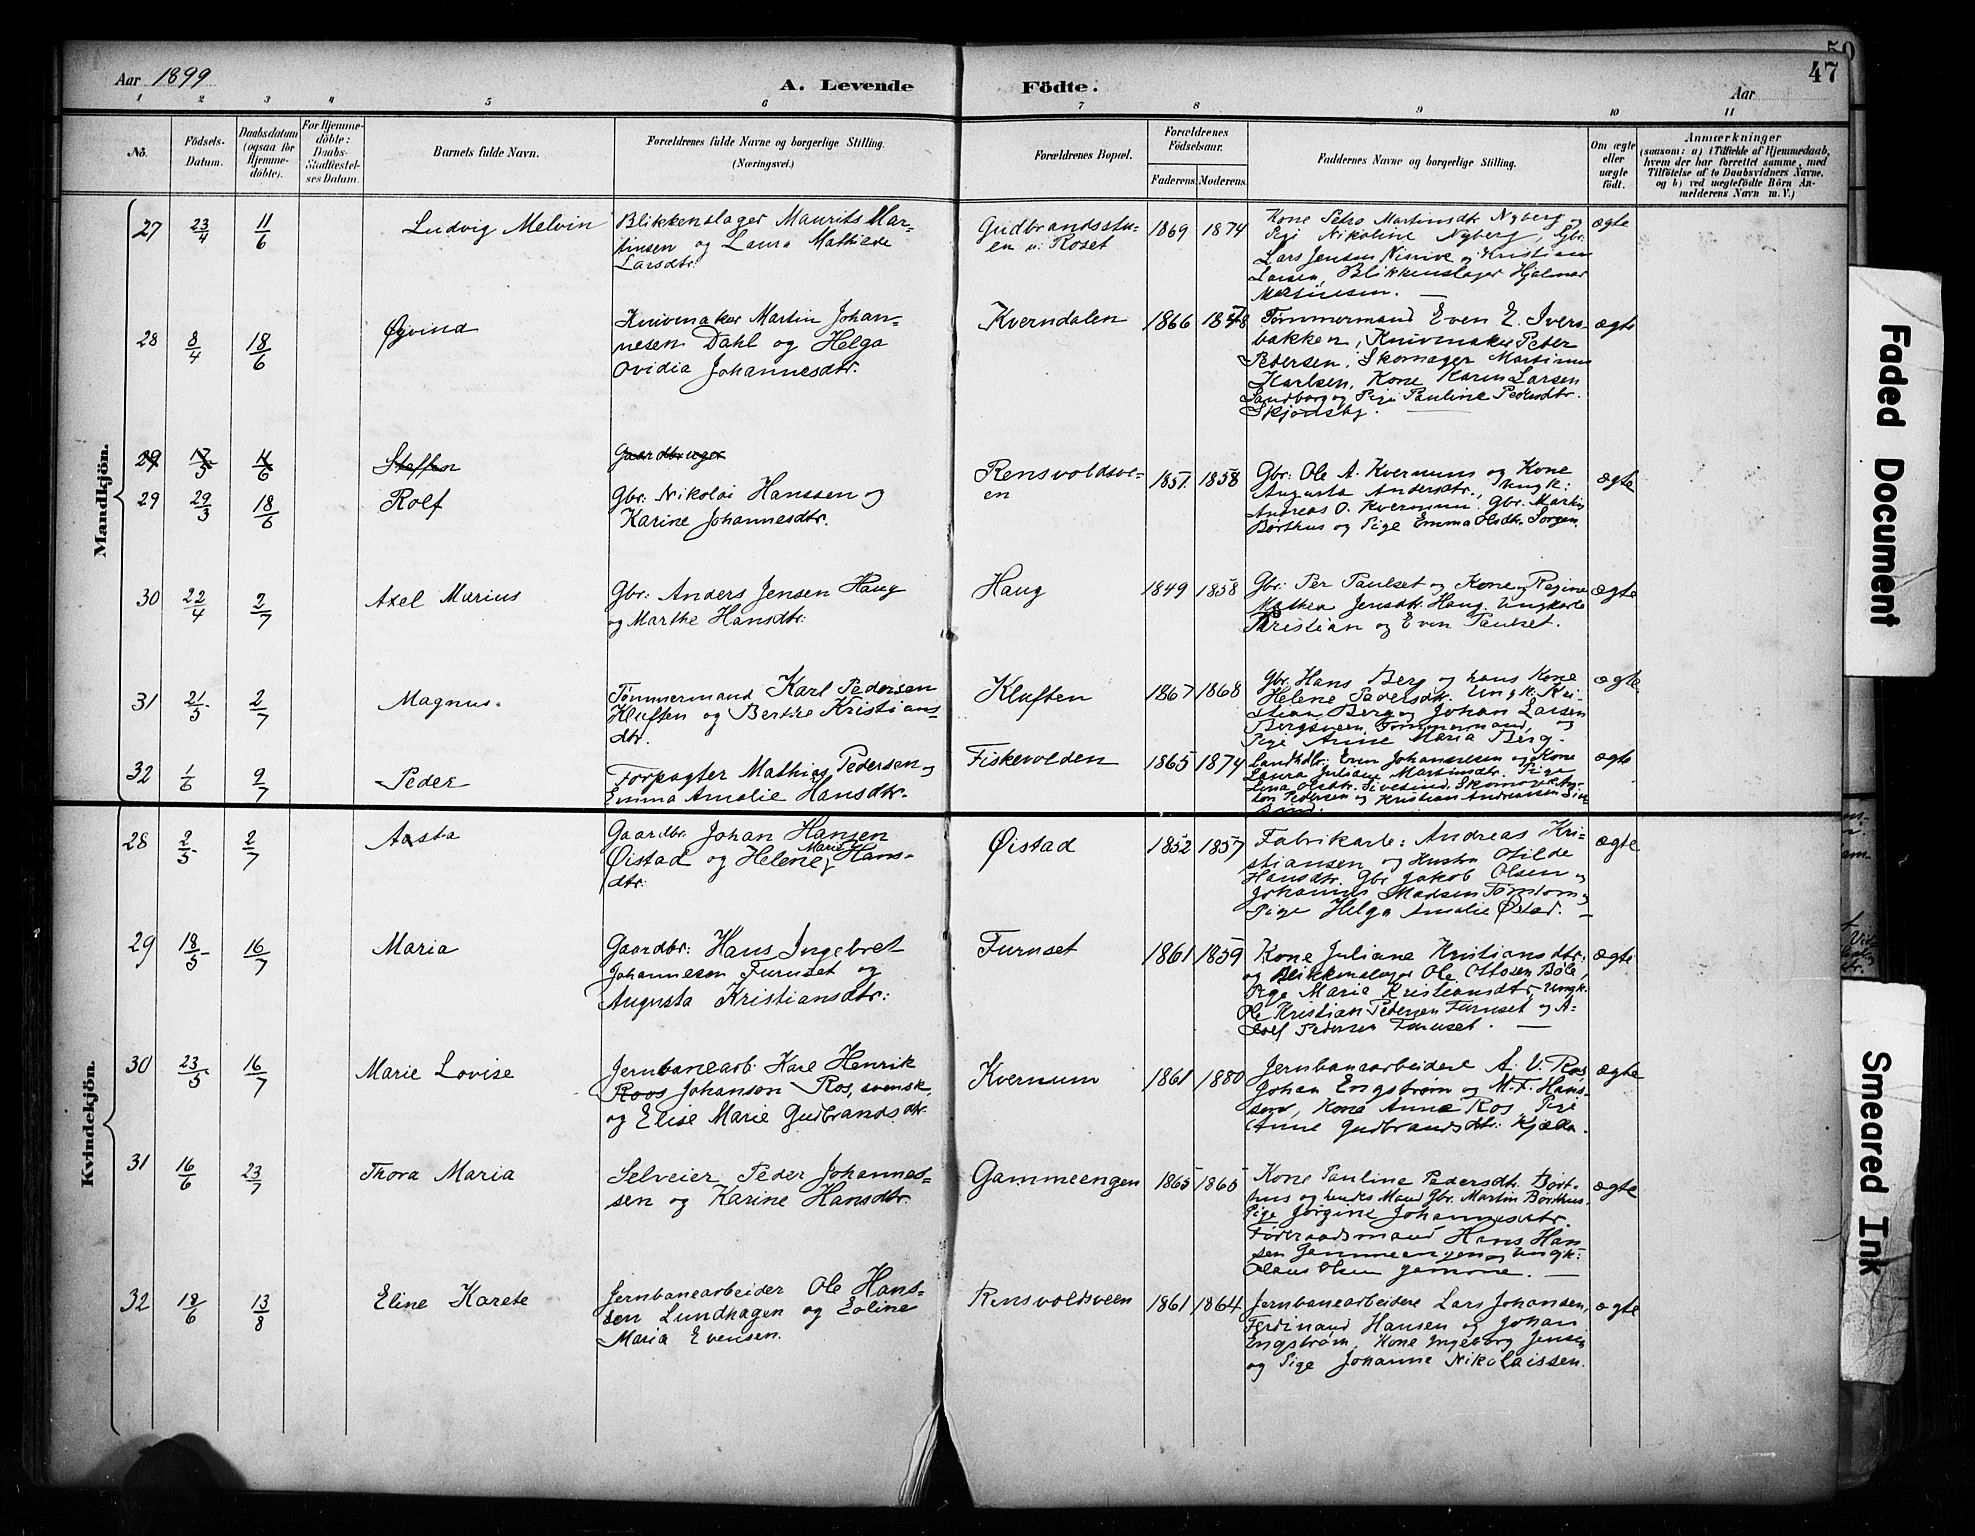 Aar 1899
A. Levende Födte.
50
47
Aar
1 2 3 4 5 6 7 8 9 10 11
No.
Födsels-
Datum.
Daabsdatum
(ogsaa for
Hjemme-
döbte).
For Hjemme-
döbte:
Daabs-
Stadfæstel-
ses Datum.
Barnets fulde Navn.
Forældrenes fulde Navne og borgerlige Stilling.
(Næringsvei.)
Forældrenes Bopæl.
Forældrenes
Födselsaar.
Faderens. Moderens.
Faddernes Navne og borgerlige Stilling.
Om ægte
eller
uægte
født.
Anmærkninger
(saasom: a) i Tilfælde af Hjemmedaab,
hvem der har forrettet samme, med
Tilföielse af to Daabsvidners Navne,
og b) ved uægtefödte Börn An-
melderens Navn m. V.)
Mandkjön.
27 23/4 11/6 Ludvig Melvin
Blikkenslager Maurits Mar-
tinsen og Laura Mathilde
Larsdtr.
Gudbrandsstu-
en u. Roset
1869 1874
Kone Petra Martinsdtr. Nyberg og
Pige Nikoline Nyberg, Gbr.
Lars Jensen og Kristian
Larsen, Blikkenslager Hjalmar
Martinsen.
ægte
28 8/4 18/6 Øyvind
Knivmaker Martin Johan-
nesen Dahl og Helga
Ovidia Johannesdtr.
Kverndalen
1866 1858
Tømmermand Even E. Ivers-
bakken, Knivmaker Peter
Pedersen, Skomager Martinus
Karlsen, Kone Karen Larsen
Sandborg og Pige Pauline Pedersdtr.
Skjønsby.
ægte
29 17/5 4/6 Steffen
Gaardbruger
29 29/3 18/6 Rolf
Gbr. Nikolai Hanssen og
Karine Johannesdtr.
Rensvoldsve-
en
1857 1858
Gbr: Ole A. Kvernum og Kone
Augusta Andersdtr., Ungk:
Andreas O. Kvernum, Gbr. Martin
Børthus og Pige Emma Olsdtr. Sorgen.
ægte
30 22/4 2/7 Axel Marius
Gbr: Anders Jensen Haug
og Marthe Hansdtr:
Haug
1849 1858
Gbr: Per Paulset og Kone og Regine
Mathea Jensdtr. Haug. Ungkarle
Kristian og Even Paulset.
ægte
31 21/5 2/7 Magnus.
Tømmermand Karl Pedersen
Kluften og Berthe Kristians-
dtr.
Kluften
1867 1868
Gbr. Hans Berg og hans Kone
Helene Pedersdtr. Ungk. Kri-
stian Berg og Johan Larsen
Bergsveen, Tømmermand, og
Pige Anne Maria Berg.
ægte
32 1/6 9/7 Peder
Forpagter Mathias Pedersen og
Emma Amalie Hansdtr.
Fiskevolden
1865 1874
Landhdlr: Even Johannesen og Kone
Laura Juliane Martinsdtr. Pige
Lina Olsdtr. Sivesind, An-
ton Pedersen og Kristian Andreassen
ægte
Kvindekjön.
28 2/5 2/7 Aasta
Gaardbr. Johan Hansen
Øistad og Helene Marie Hans-
dtr:
Øistad
1852 1857
Fabrikarb: Andreas Kri-
stiansen og Hustru Otilde
Hansdtr. Gbr Jakob Olsen og
Johannes Madsen Tømtom og
Pige Helga Amalie Østad.
ægte
29 18/5 16/7 Maria
Gaardbr: Hans Ingebret
Johannesen Furuset og
Augusta Kristiansdtr:
Furuset
1861 1859
Kone Juliane Kristiansdtr:
og Blikkenslager Ole Ottosen Bøle,
Pige Maria Kristiansdtr, Ungk.
Ole Kristian Pedersen Furuset og A-
dolf Pedersen Furuset.
ægte
30 23/5 16/7 Marie Lovise
Jernbanearb. Karl Henrik
Roos Johanson Ros, svensk,
og Elise Marie Gudbrandsdtr.
Kvernum
1861 1880
Jernbanearbeidere A. V. Ros,
Johan Engstrøm og M. F. Hans-
sen, Kone Anna Ros, Pige
Anne Gudbrandsdtr. Kjæln.
ægte
31 16/6 23/7 Thora Maria
Selveier Peder Johannes-
sen og Karine Hansdtr.
Gammeengen
1865 1865
Kone Pauline Pedersdtr. Børt-
hus og hendes Mand Gbr. Martin Børthus,
Pige Jørgine Johannesdtr.
Føderaadsmand Hans Han-
sen Gammeengen og Ungk:
Olaus Olsen Gamme.
ægte
32 18/6 13/8 Eline Karete
Jernbanearbeider Ole Hans-
sen Lundhagen og Eoline
Maria Evensen.
Rensvoldsveen
1861 1864
Jernbanearbeidere Lars Johansen,
Ferdinand Hansen og Johan
Engstrøm, Kone Ingeborg Jensen
og Pige Johanne Nikolaissen.
ægte
Faded Document
Smeared Ink